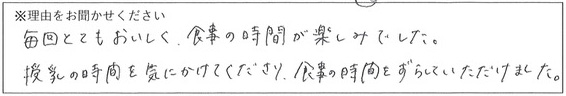 ※理由をお聞かせください
毎回とてもおいしく、食事の時間が楽しみでした。
授乳の時間を気にかけてくださり、食事の時間をずらしていただけました。